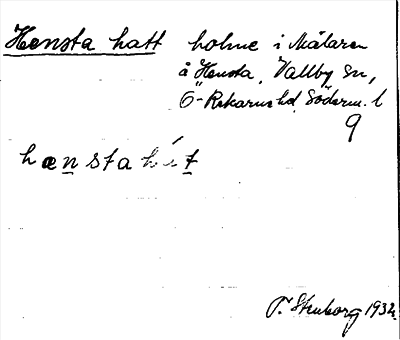 Hensta hatt holme i Mälaren
å Hensta, Vallby sn,
Ö-Rekarne hd, Söderm. l
9
hænstahat
P. Stenborg 1932.